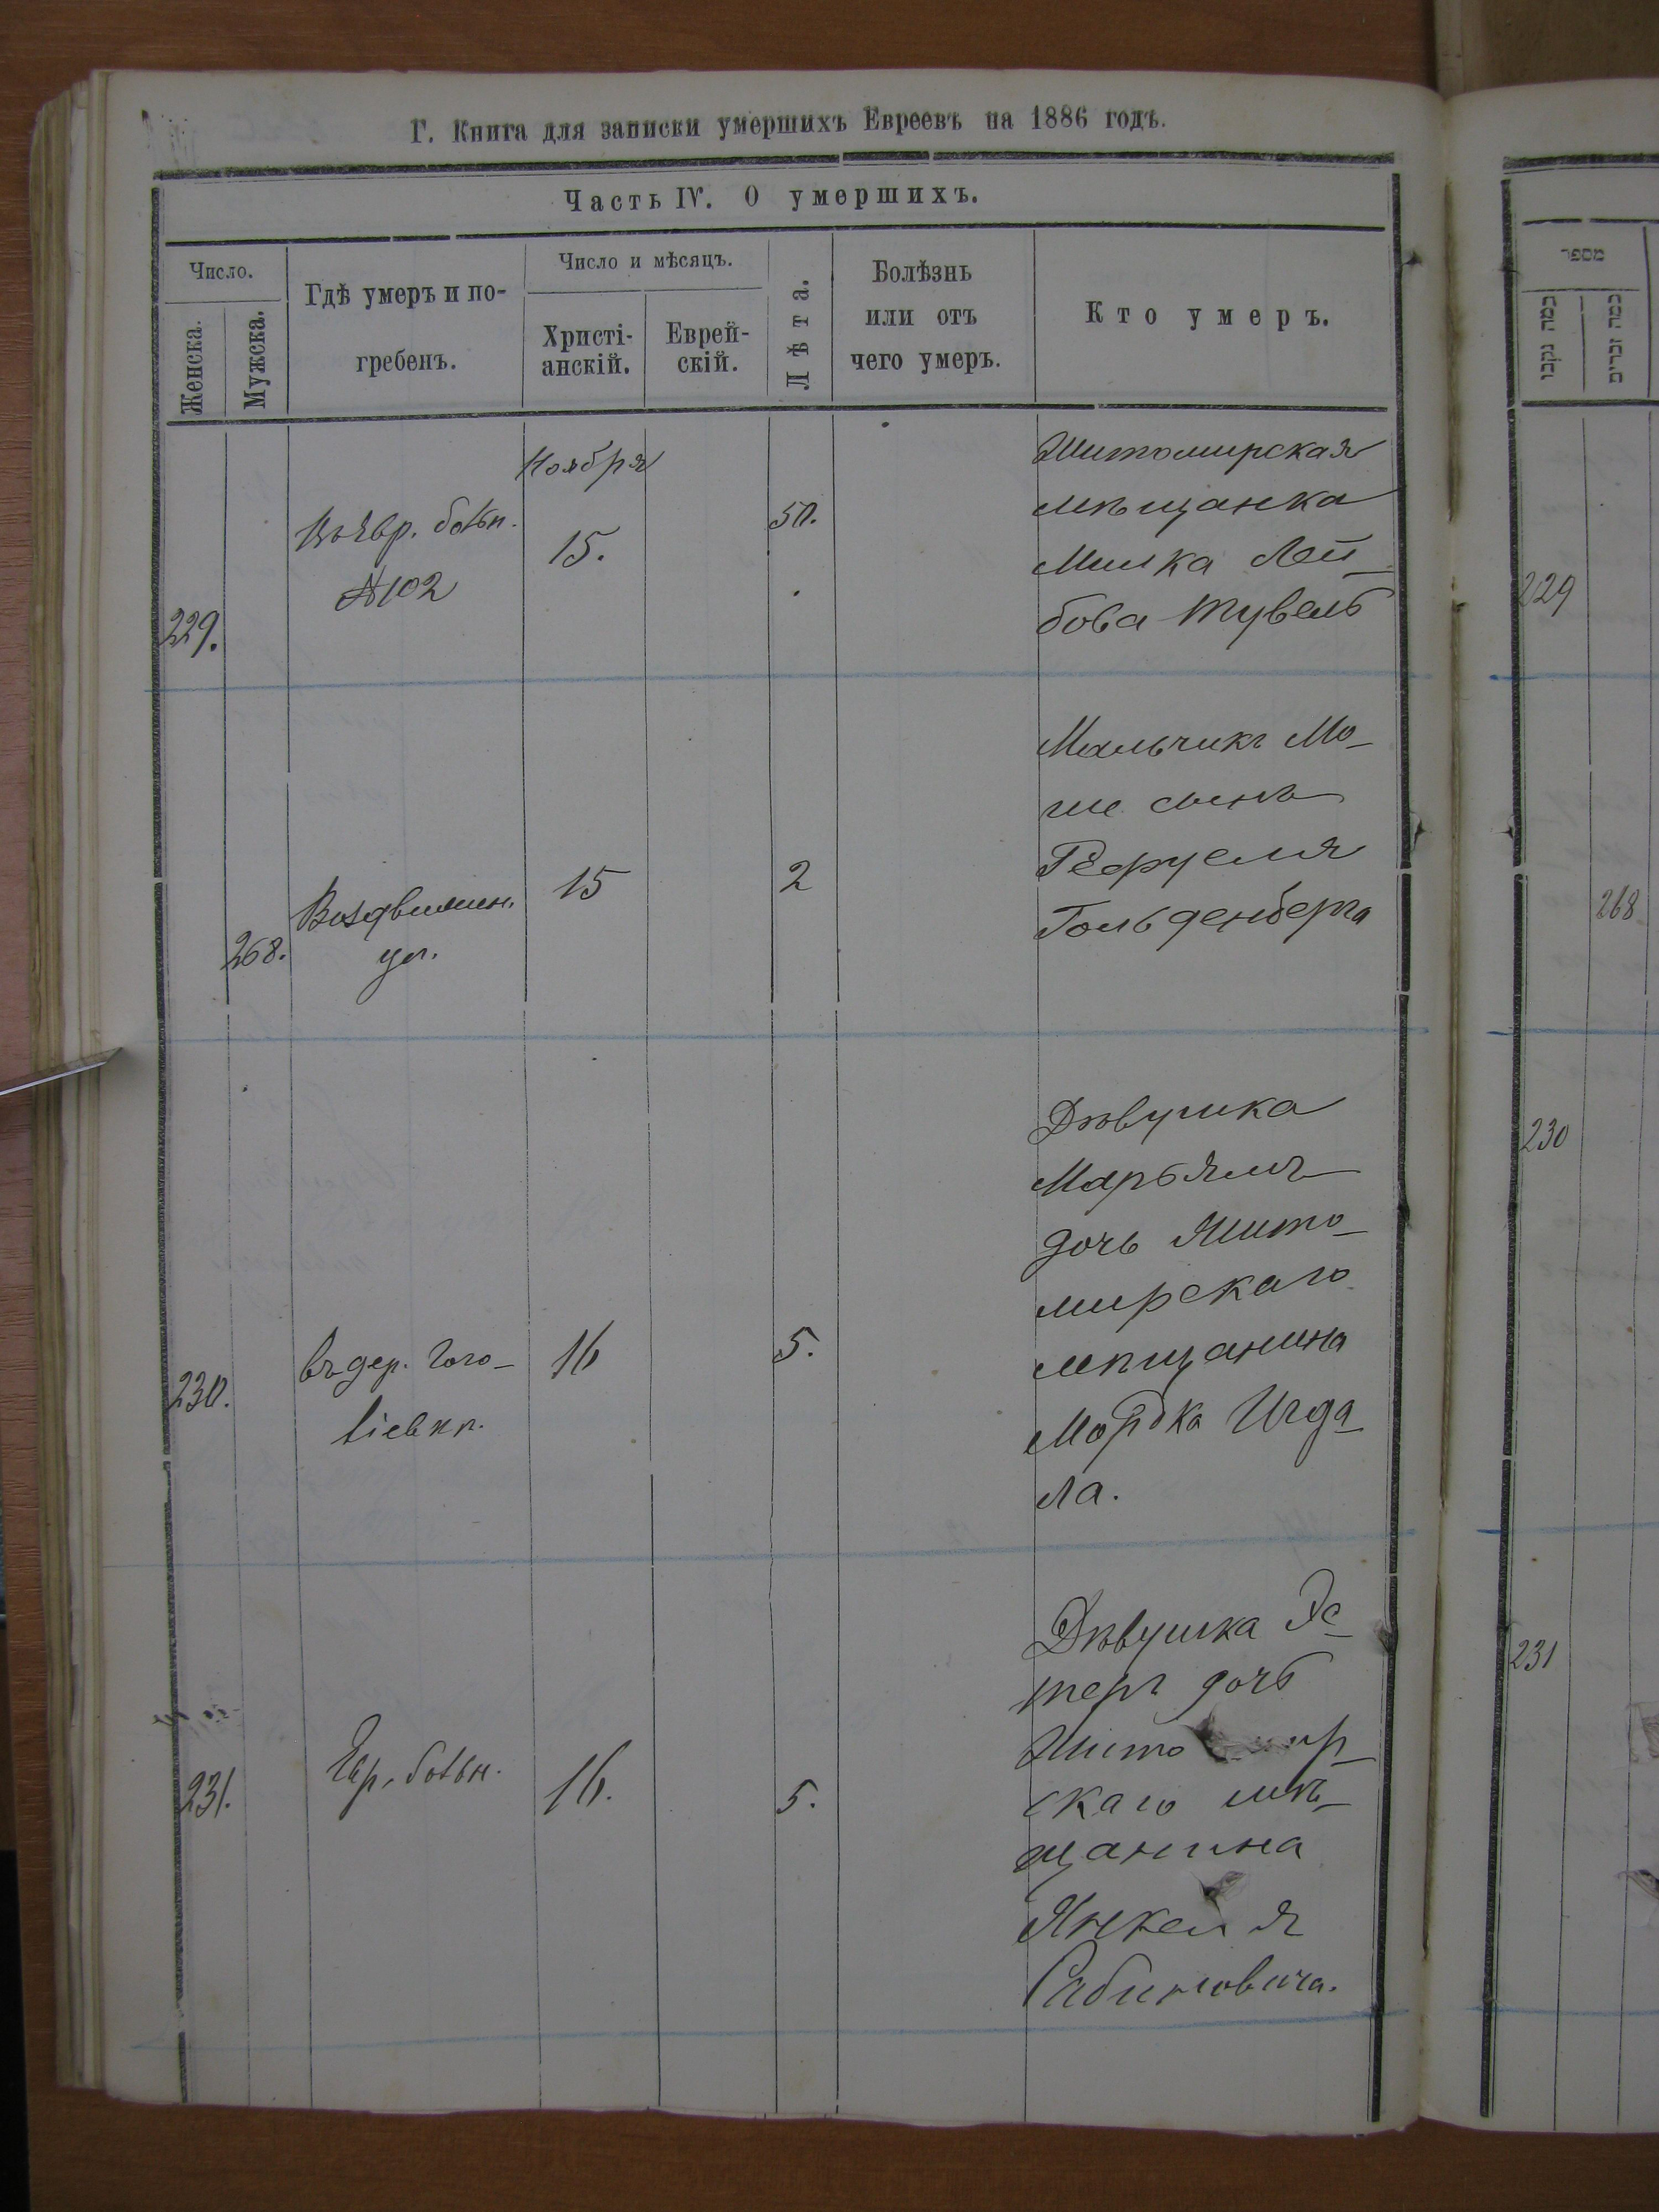 Г. Книга для записки умершихъ Евреевъ на 1886 годъ.
Часть IV. О умершихъ.
Число.
Женска.
Мужска.
Гдѣ умеръ и по-
гребенъ.
Число и мѣсяцъ.
Христі-
анскій.
Еврей-
скій.
Лѣта.
Болѣзнь
или отъ
чего умеръ.
Кто умеръ.
229.
Въ Евр. больн.
№102
Ноября
15.
50.
Житомирская
мѣщанка
Милка Лей-
бова Тувель
268.
Воздвижен.
ул.
15
2
Мальчикъ Мо-
ше сынъ
Гольденберга
230.
въ дер. Гого-
16
5.
Дѣвушка
Марьямъ
дочь Жито-
мирскаго
мѣщанина
Мордка Игда-
ла.
231.
Евр. больн.
16.
5.
Дѣвушка Эс-
теръ дочь
Жито мир-
скаго мѣ-
щанина
Янкеля
Рабиновича.
229
268
230
231